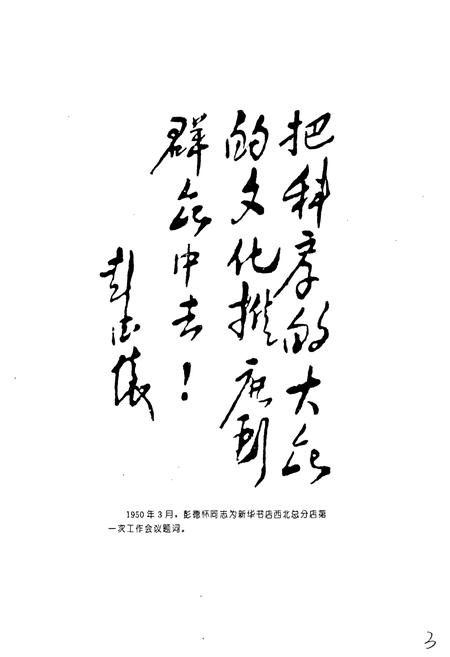 把科学的大众
的文化推广到
群众中去！
彭德懷
1950年3月，彭德怀同志为新华书店西北总分店第
一次工作会议题词。
3